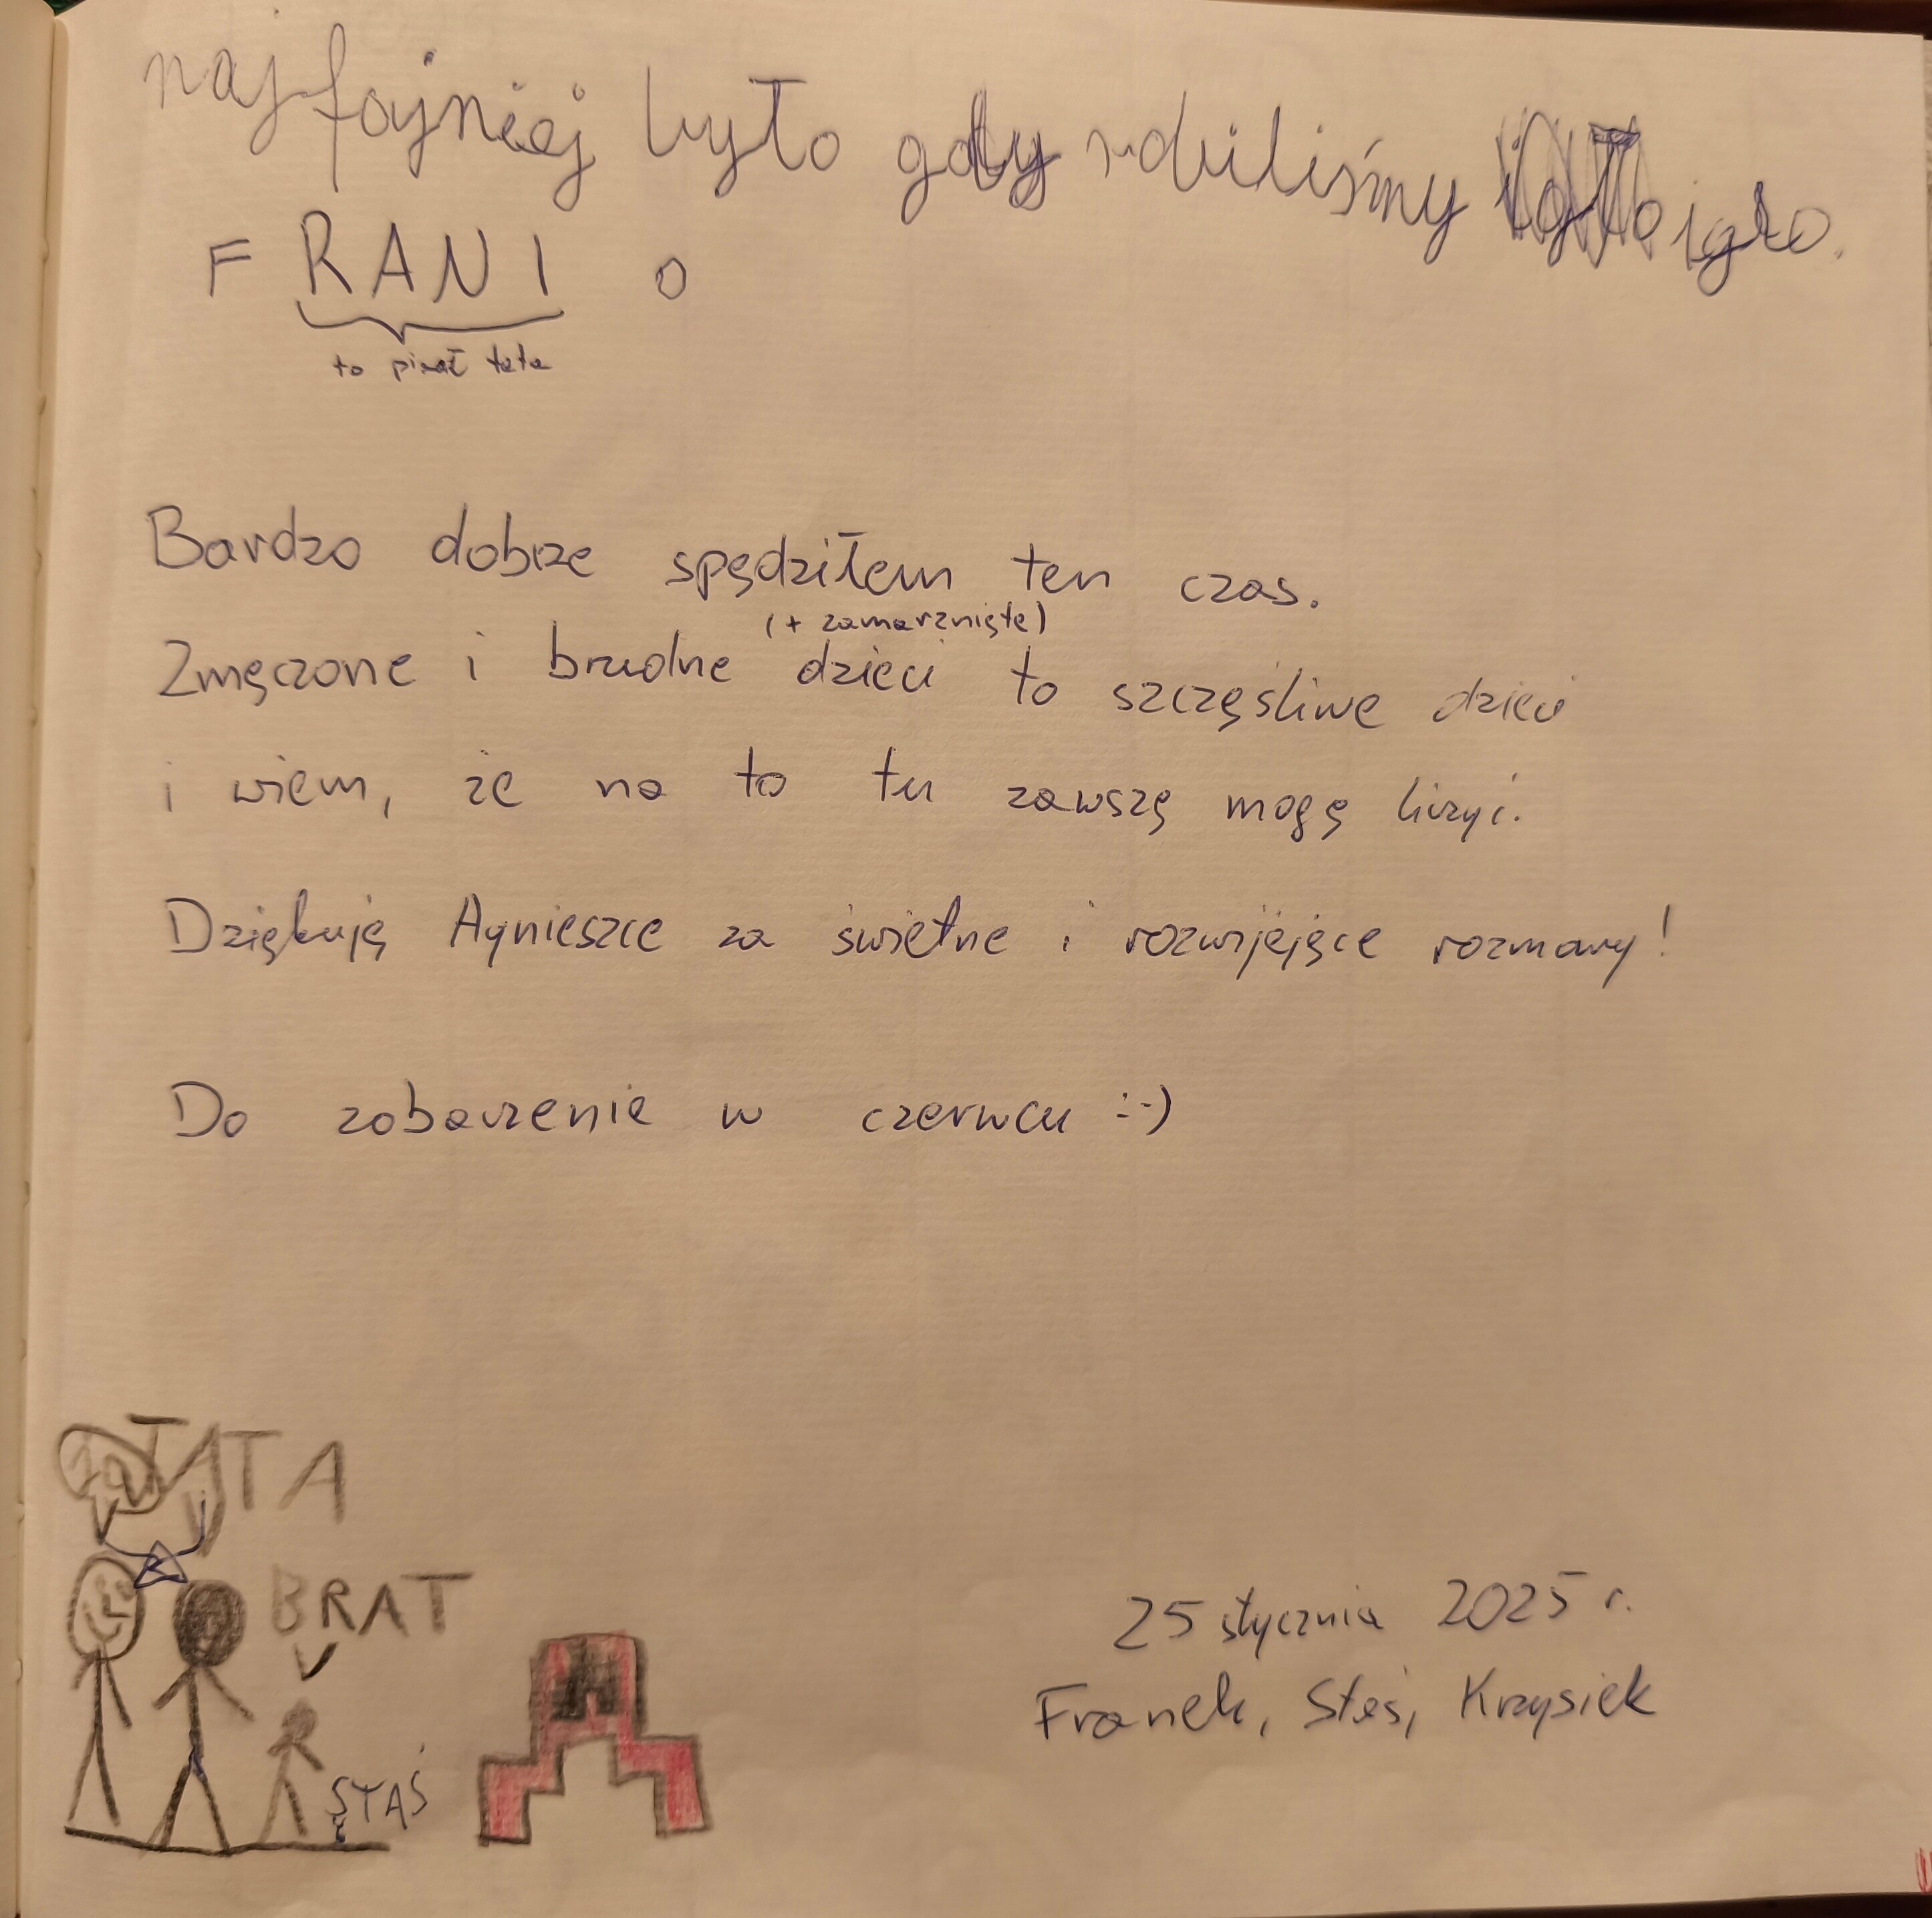 najfajniej było gdy robiliśmy igło igło.
F RANI o
to pisał tata
Bardzo dobrze spędziłem ten czas.
(+ zamarznięte)
Zmęczone i brudne dzieci to szczęśliwe dzieci
i wiem, że na to tu zawszę mogę liczyć.
Dziękuję Agnieszce za świetne i rozwijające rozmowy!
Do zobaczenia w czerwcu :-)
TATA
BRAT
STAŚ
25 stycznia 2025 r.
Franek, Staś, Krzysiek